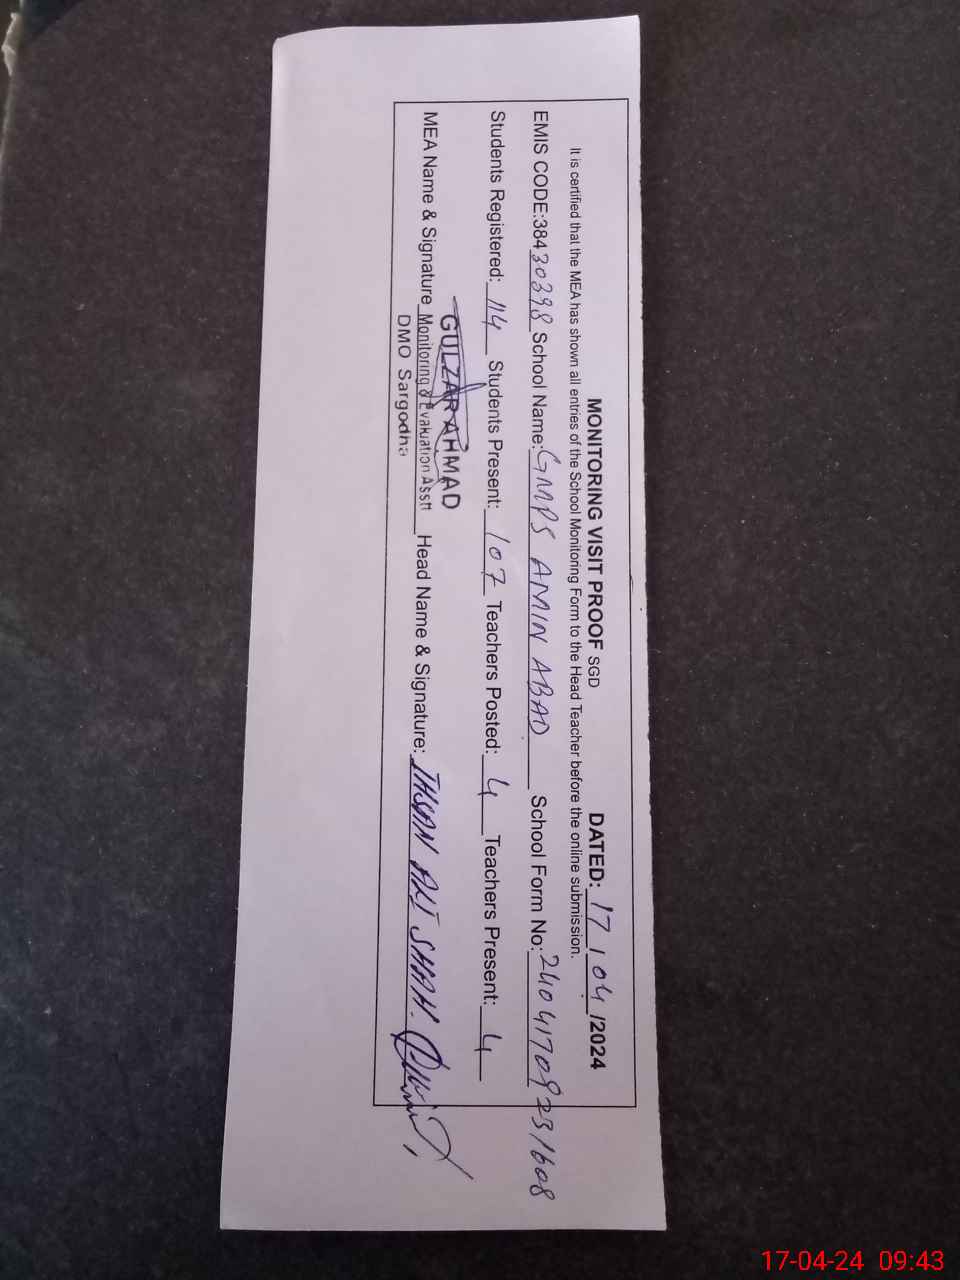 MONITORING VISIT PROOF SGD DATED: 17/04/2024
It is certified that the MEA has shown all entries of the School Monitoring Form to the Head Teacher before the online submission.
EMIS CODE:38430398 School Name: GMPS AMIN ABAD School Form No: 24041709231608
Students Registered: 114 Students Present: 107 Teachers Posted: 4 Teachers Present: 4
GULZAR AHMAD
MEA Name & Signature Monitoring & Evaluation Asstt Head Name & Signature: IHSAN ALI SHAH.
DMO Sargodha
17-04-24 09:43